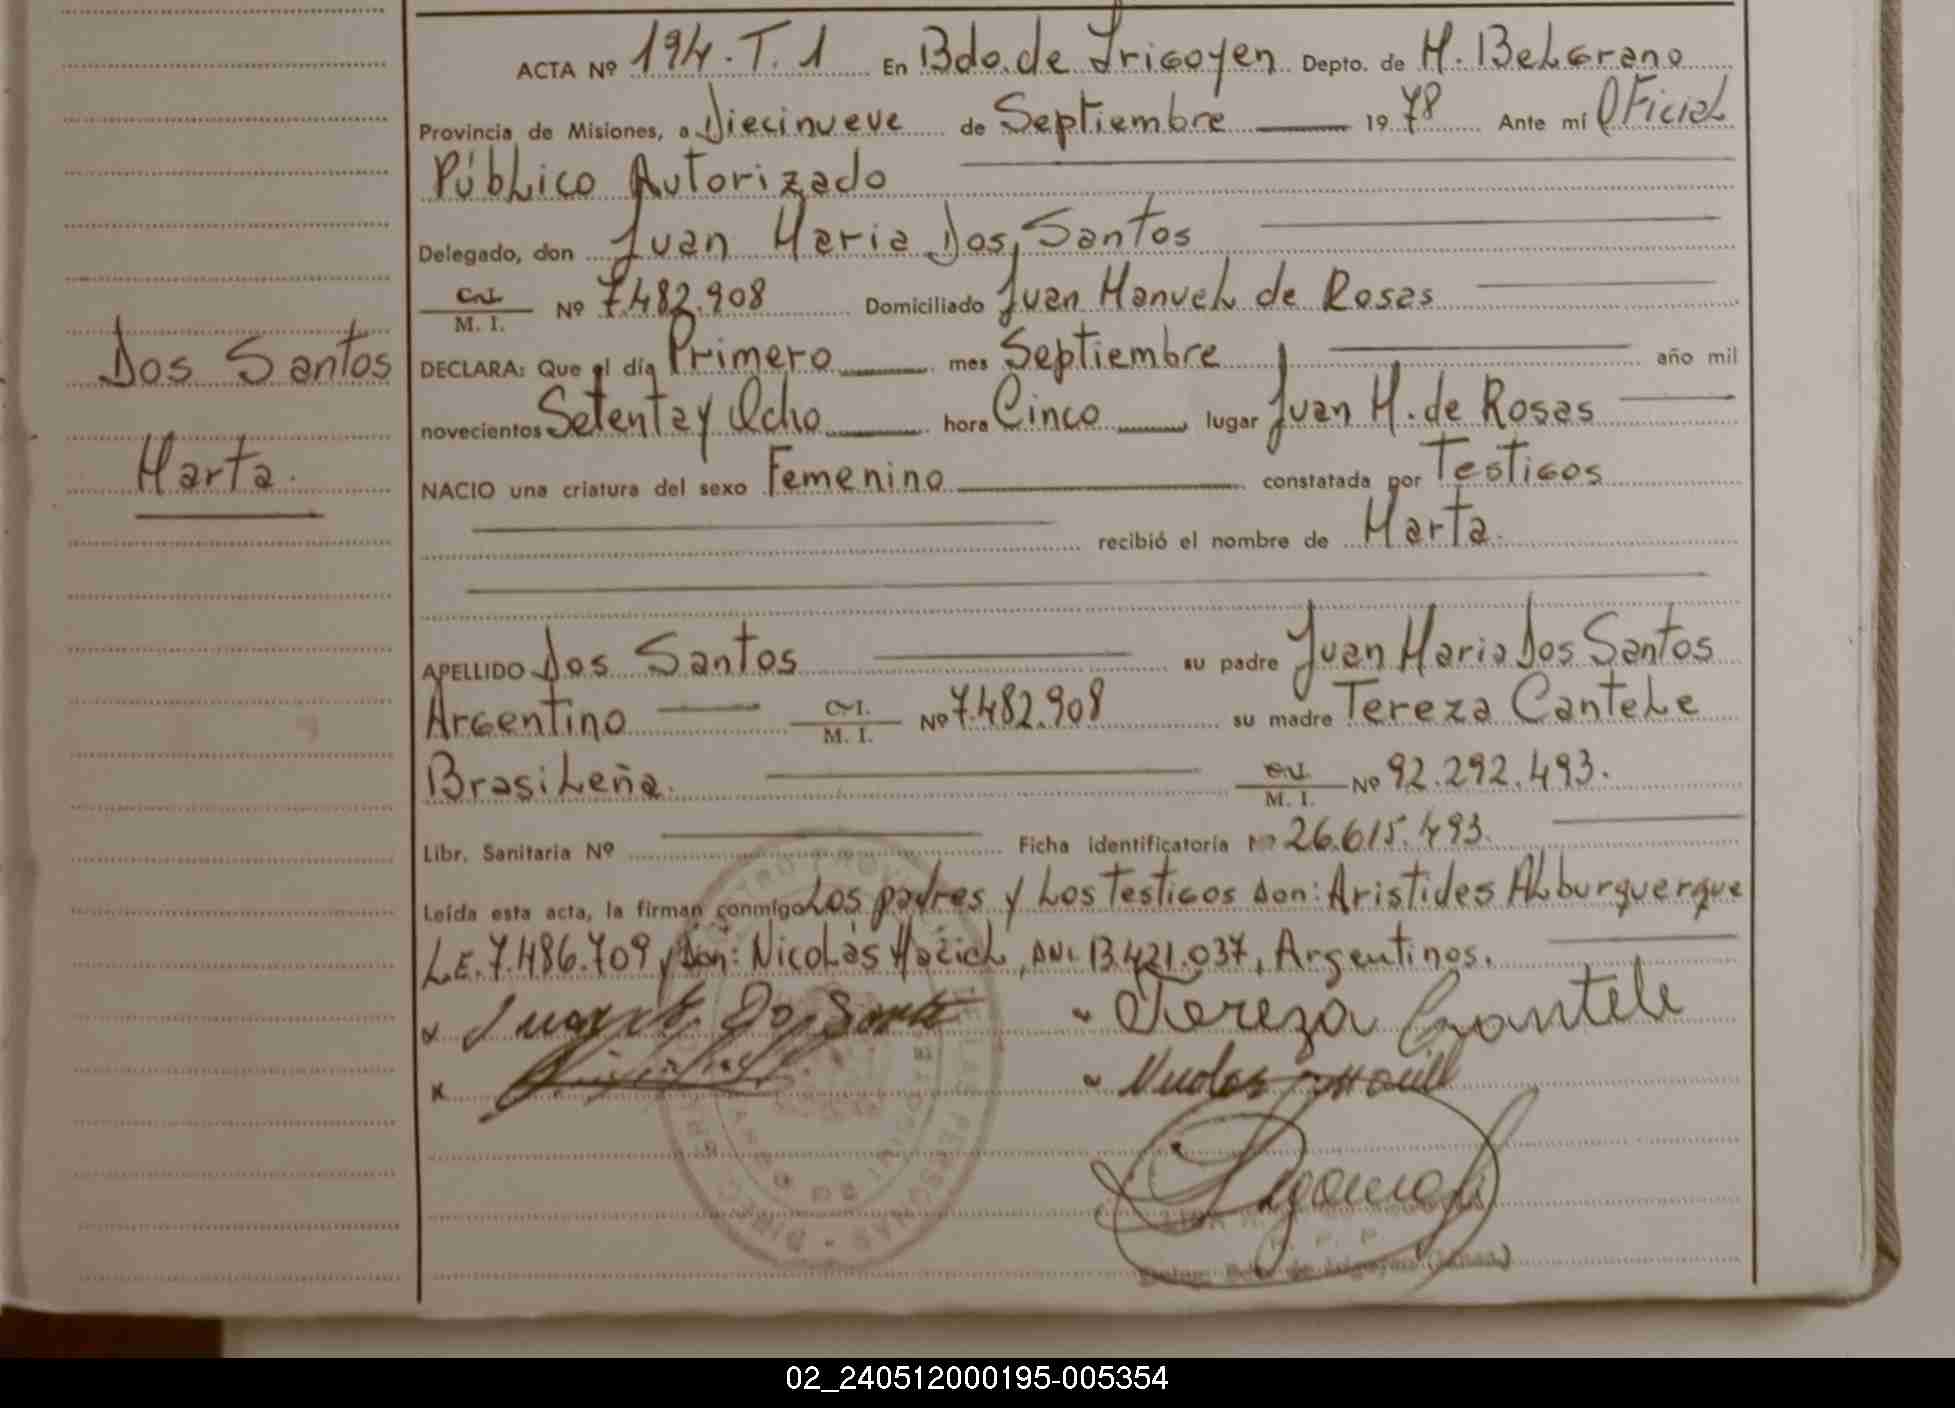 ACTA Nº 194. T. 1 En Bdo. de Irigoyen Depto. de M. Belgrano
Provincia de Misiones, a Diecinueve de Septiembre 1978 Ante mí Oficial
Público Autorizado
Delegado, don Juan Maria Dos Santos
C.I. M. I. Nº 7.482.908 Domiciliado Juan Manuel de Rosas
Dos Santos
DECLARA: Que el día Primero mes Septiembre año mil
novecientos Setenta y Ocho hora Cinco lugar Juan M. de Rosas
Marta.
NACIO una criatura del sexo Femenino constatada por Testigos
recibió el nombre de Marta.
APELLIDO Dos Santos su padre Juan Maria Dos Santos
Argentino C.I. M. I. Nº 7.482.908 su madre Tereza Cantele
Brasileña. C.I. M. I. Nº 92.292.493.
Libr. Sanitaria Nº Ficha identificatoria Nº 26.615.493.
Leída esta acta, la firman conmigo Los padres y Los testigos Don: Aristides Alburquerque
L.E. 7.486.709, Don: Nicolás , DNI. 13.421.037, Argentinos.
Dos Santos Tereza Cantele
Nicolas
02_240512000195-005354